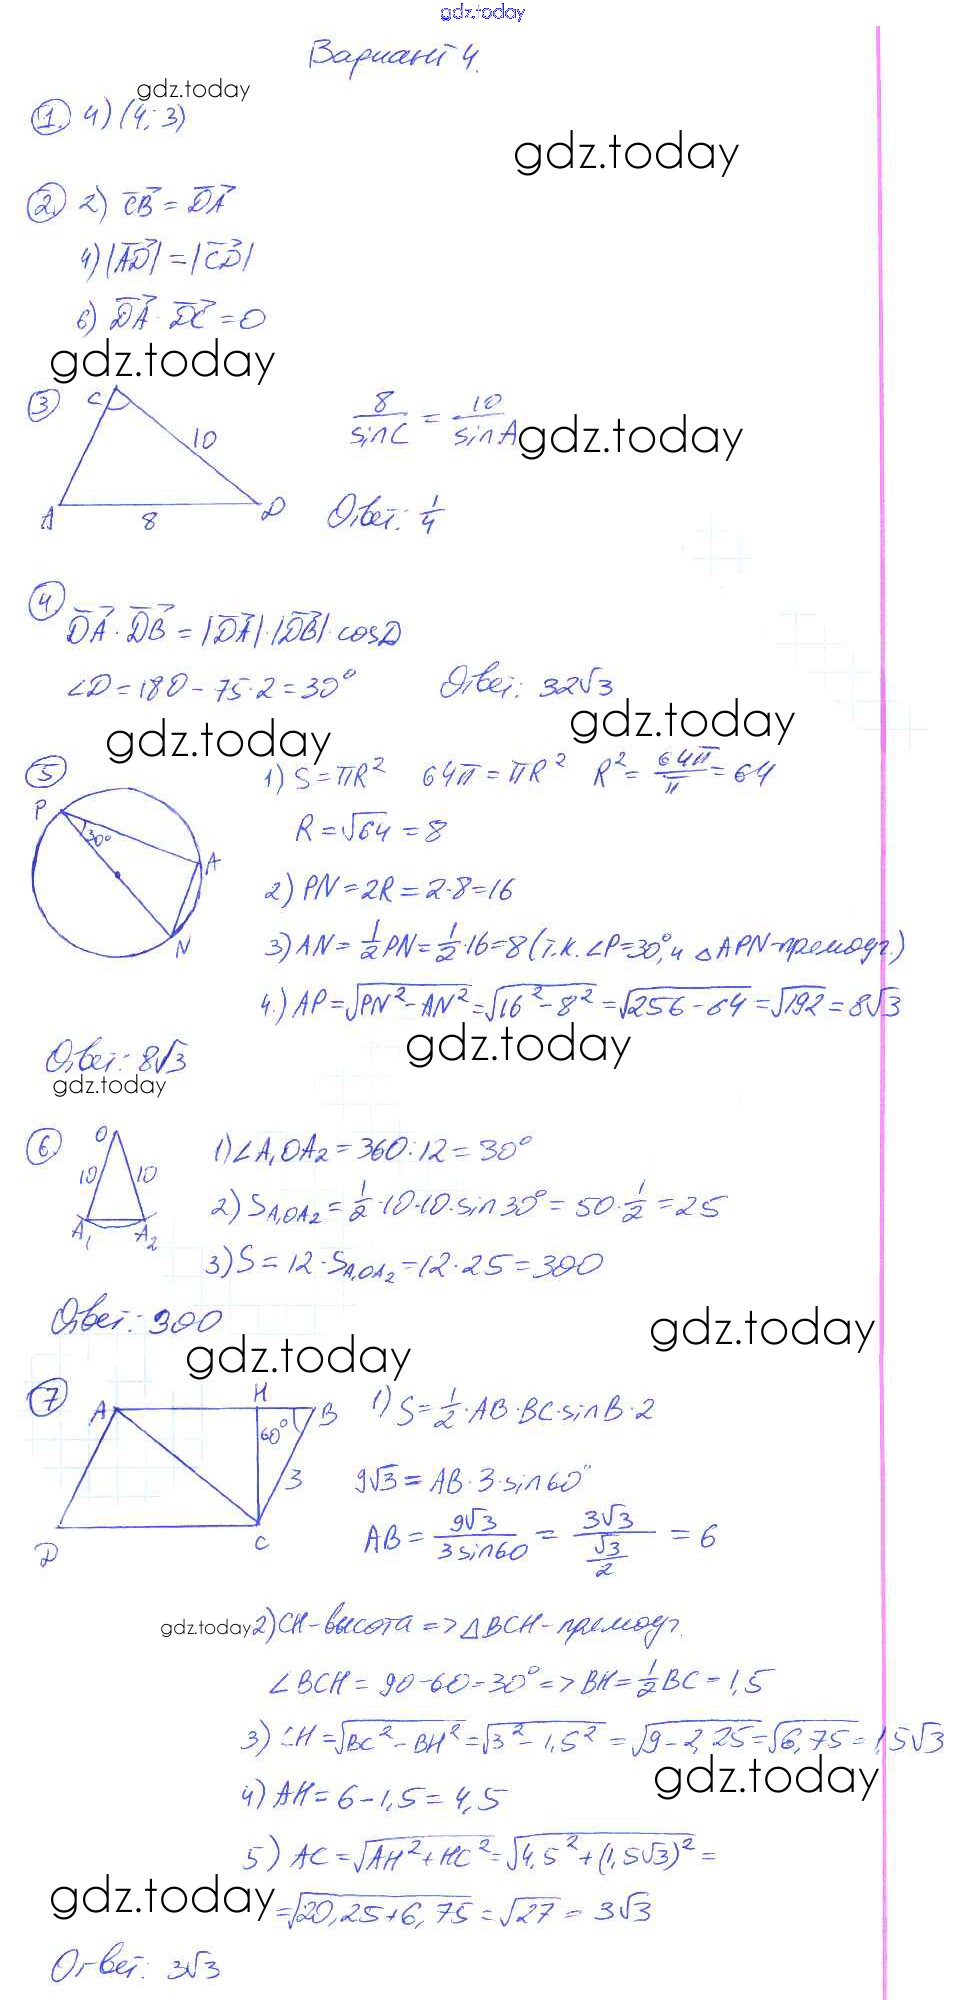 gdz.today
Вариант 4.
gdz.today
1. 4) (4; 3)
gdz.today
2. 2) CB = DA
4) |AD| = |CD|
6) DA · DC = 0
gdz.today
3 C 10 A 8 D
8/sin C = 10/sin A
gdz.today
Ответ: 1/4
4
DA · DB = |DA| · |DB| · cos D
∠D = 180 - 75·2 = 30° Ответ: 32√3
gdz.today
gdz.today
5 P 30° A N
1) S = πR² 64π = πR² R² = 64π/π = 64
R = √64 = 8
2) PN = 2R = 2·8 = 16
3) AN = 1/2 PN = 1/2 · 16 = 8 (т.к. ∠P = 30°, и △APN - прямоуг.)
4.) AP = √(PN² - AN²) = √(16² - 8²) = √(256 - 64) = √192 = 8√3
gdz.today
Ответ: 8√3
gdz.today
6 O 10 10 A₁ A₂
1) ∠A₁OA₂ = 360 : 12 = 30°
2) S A₁OA₂ = 1/2 · 10 · 10 · sin 30° = 50 · 1/2 = 25
3) S = 12 · S A₁OA₂ = 12 · 25 = 300
Ответ: 300
gdz.today
gdz.today
7 A H B 60° 3 D C
1) S = 1/2 · AB · BC · sin B · 2
9√3 = AB · 3 · sin 60°
AB = 9√3/3 sin 60 = 3√3/(√3/2) = 6
gdz.today
2) CH - высота => △BCH - прямоуг.
∠BCH = 90 - 60 = 30° => BH = 1/2 BC = 1,5
3) CH = √(BC² - BH²) = √(3² - 1,5²) = √(9 - 2,25) = √6,75 = 1,5√3
gdz.today
4) AH = 6 - 1,5 = 4,5
5) AC = √(AH² + HC²) = √(4,5² + (1,5√3)²) =
gdz.today
= √(20,25 + 6,75) = √27 = 3√3
Ответ: 3√3